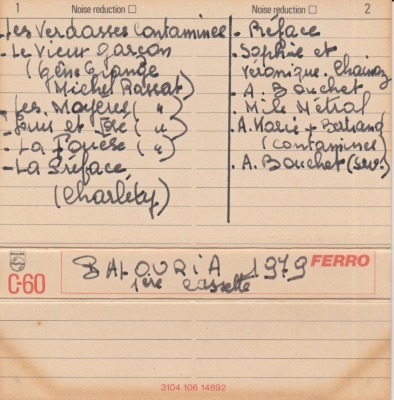 1 Noise reduction □
- Les Verdasses Contamines
- Le Vieux garçon
(6ème Grange
Michel Rassat)
- Les Moyères (")
- Louis et José (")
- La Fouèse (")
- La Préface
(Charléty)
Noise reduction □ 2
- Préface
- Sophie et
Véronique. Chamox
. A. Bouchet
. Mlle Métral
. A. Marie + Bertrand
(Contamines)
. A. Bouchet (serv.)
PHILIPS
C-60
BAJOURIA 1979
1ère Cassette
FERRO
3104 106 14892